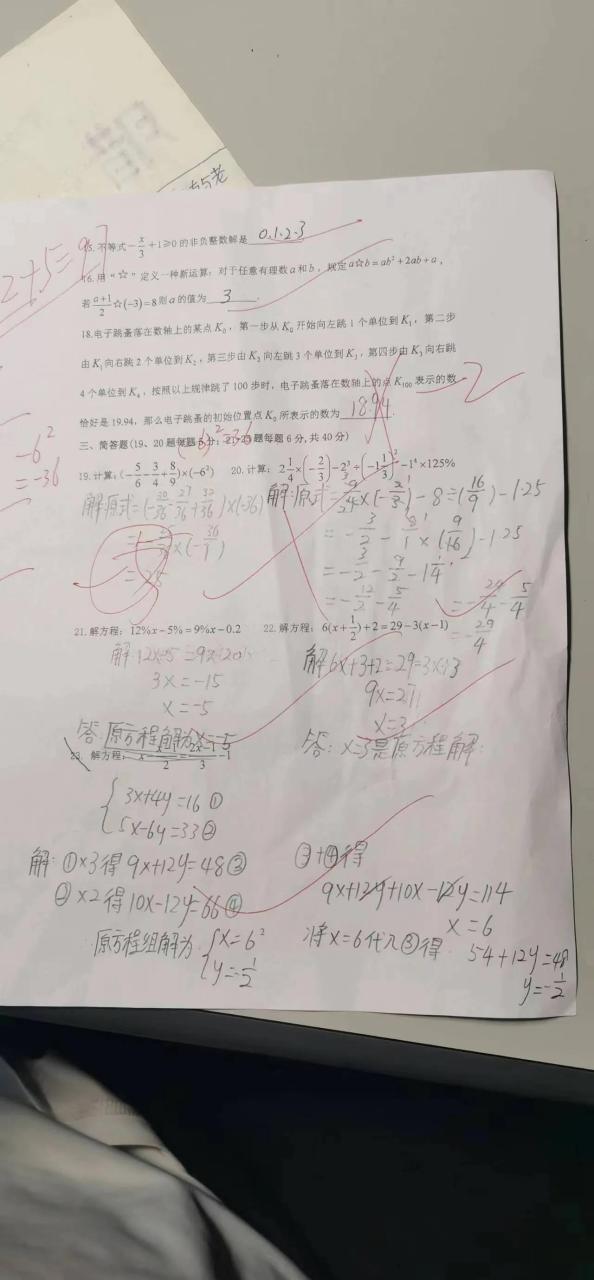 2+5=97
15. 不等式-x/3+1≥0的非负整数解是 0.1.2.3
16. 用“☆”定义一种新运算：对于任意有理数a和b，规定a☆b=ab²+2ab+a，
若(a+1)/2☆(-3)=8则a的值为 3 .
18.电子跳蚤落在数轴上的某点K₀，第一步从K₀开始向左跳1个单位到K₁，第二步
由K₁向右跳2个单位到K₂，第三步由K₂向左跳3个单位到K₃，第四步由K₃向右跳
4个单位到K₄，按照以上规律跳了100步时，电子跳蚤落在数轴上的点K₁₀₀表示的数
恰好是19.94，那么电子跳蚤的初始位置点K₀所表示的数为 18.94 .
-6²
=-36
三、简答题(19、20题每题5分；21-23题每题6分，共40分)
19. 计算：(-5/6-3/4+8/9)×(-6²) 20. 计算：2 1/4×(-2/3)-2³÷(-1 1/3)²-1⁴×125%
解:原式=(-30/36-27/36+32/36)×(-36)
=25
解:原式=9/4×(-2/3)-8÷(16/9)-1.25
=-3/2-8/1×(9/16)-1.25
=-3/2-9/2-1 1/4
=-12/2-5/4 =-24/4-5/4
=-29/4
21. 解方程：12%x-5%=9%x-0.2 22. 解方程：6(x+1/2)+2=29-3(x-1)
解:12x-5=9x-20
3x=-15
x=-5
答:原方程解为x=-5
解6x+3+2=29-3x+3
9x=27
x=3
答：x=3是原方程解.
23. 解方程：
{3x+4y=16 ①
5x-6y=33 ②
解: ①×3得 9x+12y=48 ③
②×2得 10x-12y=66 ④
③+④得
9x+12y+10x-12y=114
x=6
将x=6代入③得 54+12y=48
y=-1/2
∴原方程组解为 {x=6
y=-1/2